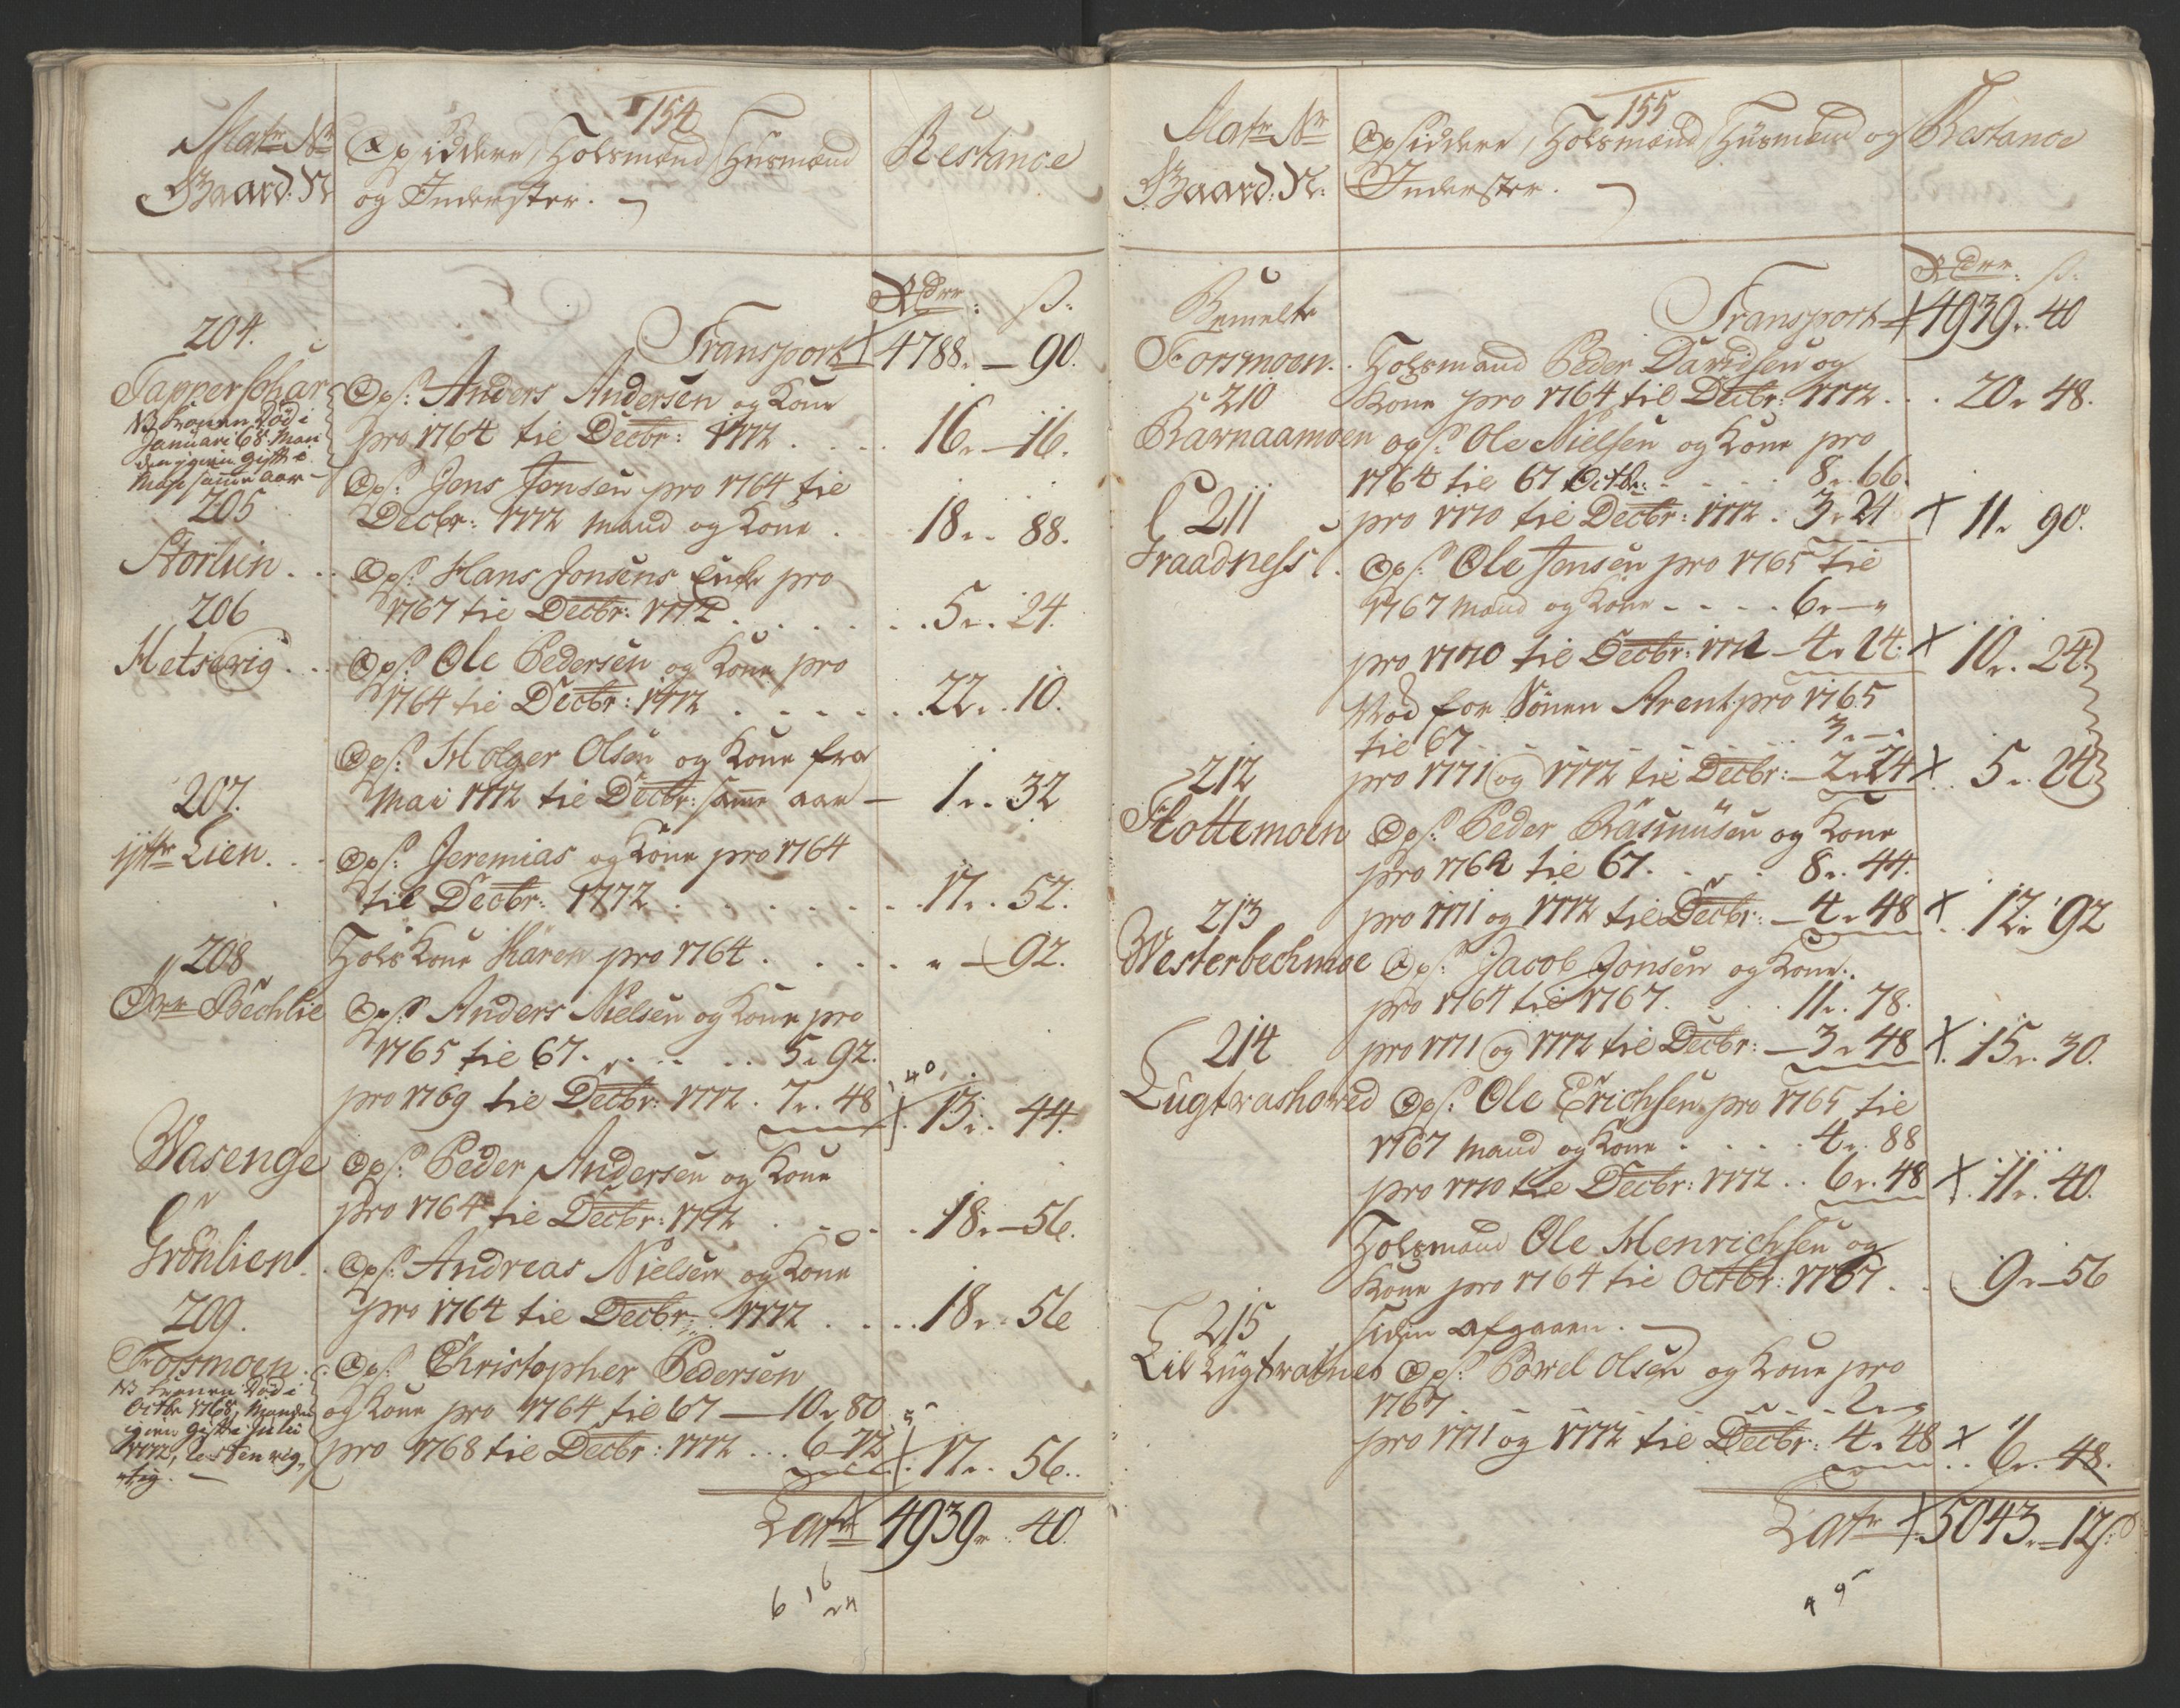 154
Matr: No
Gaard: N
Opsiddere, Holsmænd, Huusmænd
og Inderster.
Restance
Rdrr: s:
204.
Transport 4788. - 90.
Tapperskar
NB Konen Död i
Januari 68. Man
den igien gift i
Maji samme aar
Ops: Anders Andersen og Kone
pro 1764 til Decbr: 1772 . . . 16. - 16.
Ops: Jens Jensen pro 1764 til
Decbr: 1772 Mand og Kone . . 18. . 88.
205
Storlien . .
Ops: Hans Jonsens Enke pro
1767 til Decbr: 1772 . . . . . . 5. . 24.
206
Hetserig . .
Ops: Ole Pedersen og Kone pro
1764 til Decbr: 1772 . . . . . 22. . 10.
Ops: Holger Olsen og Kone fra
Mai 1772 til Decbr: samme aar — 1. . 32
207.
yttr Lien . .
Ops: Jeremias og Kone pro 1764
til Decbr: 1772 . . . . . . . 17. . 52.
208
Hols Kone Karen pro 1764 . . . . . „ - 92.
Bechlie
Ops: Anders Nielsen og Kone pro
1765 til 67 . . . . . . 5. 92.
pro 1769 til Decbr: 1772 . 7. . 48 13. . 44.
Wasenge
Ops: Peder Andersen og Kone
pro 1764 til Decbr: 1772 . . . . 18. - 56.
Grönlien .
Ops: Andreas Nielsen og Kone
pro 1764 til Decbr: 1772 . . . . 18. . 56
209.
Forsmoen . .
NB Konen Död i
Octbr 1768, Manden
igien gift i Julii
1772, Resten rig-
tig. —
Ops: Christopher Pedersen
og Kone pro 1764 til 67 — 10. 80
pro 1768 til Decbr: 1772 . . . 6 - 72 17. . 56.
Latr 4939. . 40.
155
Matr No
Gaard: N:
Opsiddere, Holsmænd, Huusmænd og
Inderster.
Restance
Rdrr: s:
Bemelte
Transport 4939. 40
Forsmoen . .
Holsmand Peder Davidsen og
Kone pro 1764 til Decbr: 1772 . . . 20. 48.
210
Barnaamoen
ops: Ole Nielsen og Kone pro
1764 til 67 Octbr: - - - - 8. 66.
pro 1770 til Decbr: 1772 . 3. 24 x 11. 90.
211
Fraadness .
Ops: Ole Jensen pro 1765 til
1767 Mand og Kone - - - - 6. — „
pro 1770 til Decbr: 1772 — 4. 24. x 10. . 24.
Nod for Sönen Arent pro 1765
til 67 . . . . . . . 3. — „
pro 1771 og 1772 til Decbr: — 2. 24 x . 5. . 24
212
Flottemoen
Ops: Peder Rasmusen og Kone
pro 1764 til 67 . . . . 8. . 44.
pro 1771 og 1772 til Decbr: — 4. 48 x . 12. 92
213
Westerbechmoe
Ops: Jacob Jonsen og Kone .
pro 1764 til 1767 . . . . 11. . 78.
pro 1771 og 1772 til Decbr: — 3. 48 x . 15. . 30.
214
Lugtrashoved
Ops: Ole Erichsen pro 1765 til
1767 Mand og Kone . . . . 4. . 88
pro 1770 til Decbr: 1772 . . 6. . 48 x . 11. . 40.
Holsmand Ole Henrichsen og
Kone pro 1764 til Octbr: 1767 . . 9. - 56
siden afgaaen . —
215
Lil Lugtratnes
Ops: Powel Olsen og Kone pro
1767 . . . . . . . . . 2. — „
pro 1771 og 1772 til Decbr: 4. 48 x . . 6. . 48.
Latr x 5043. - 12s: